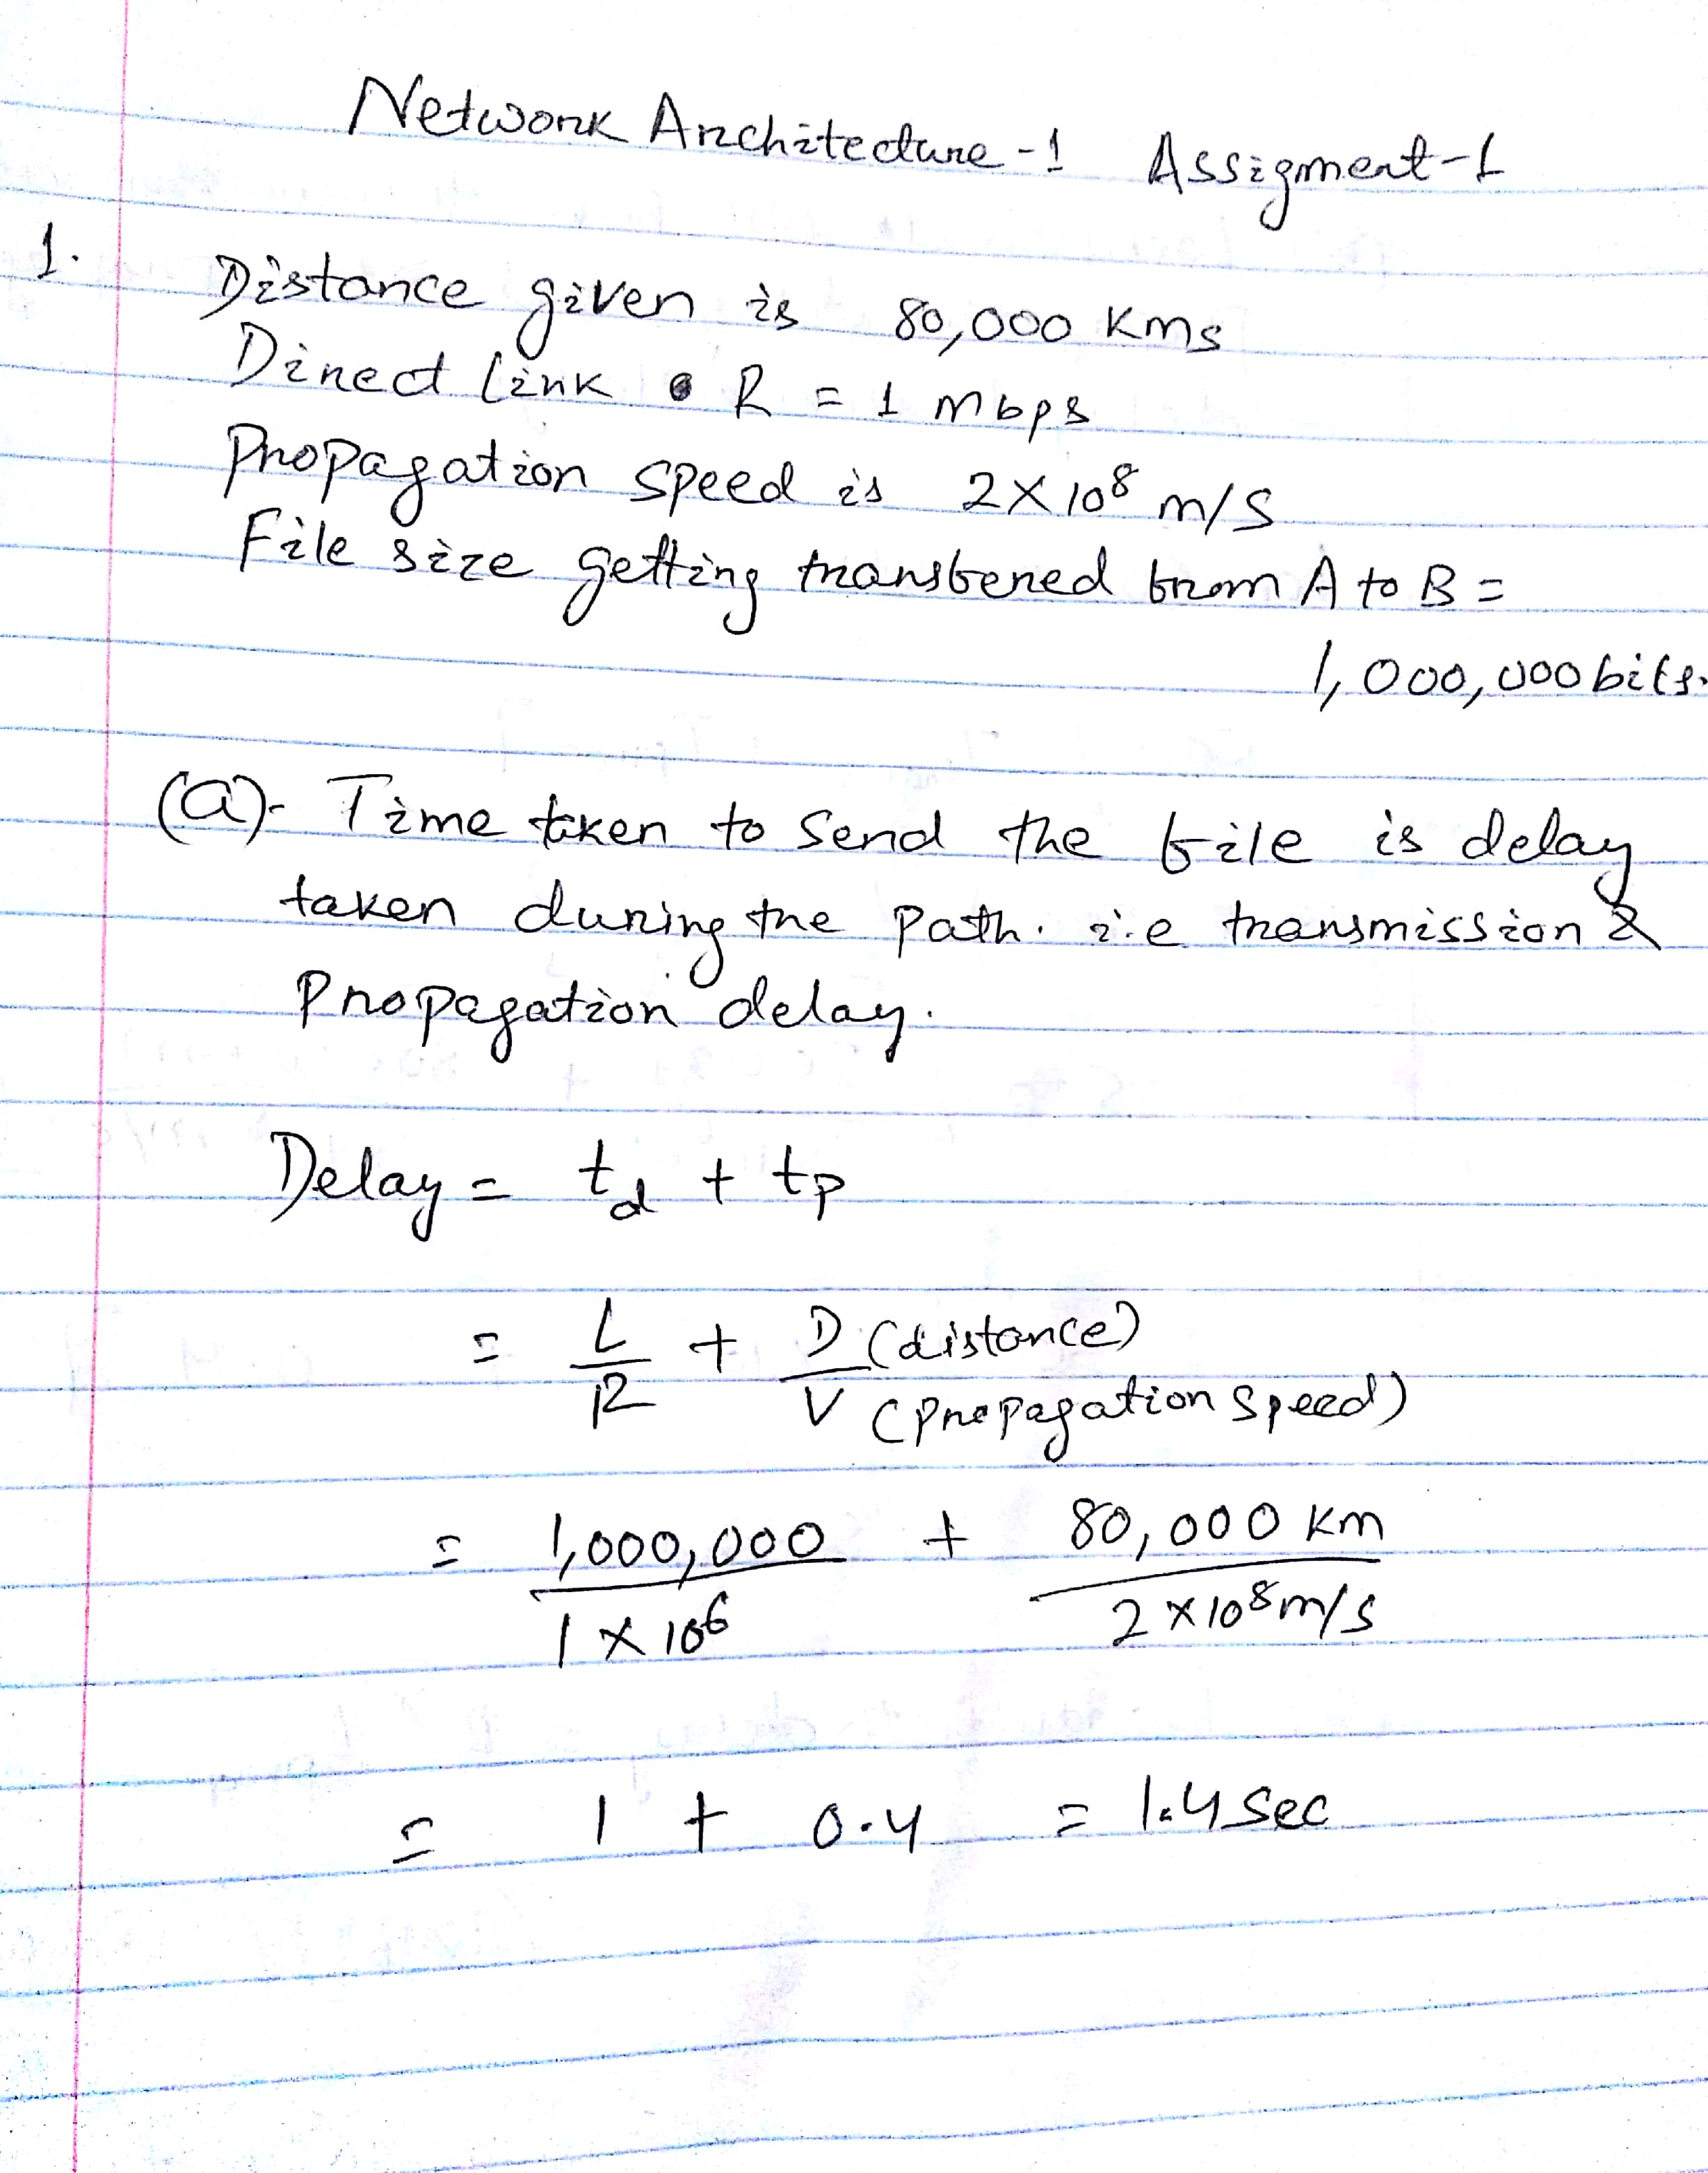 Network Architecture-1 Assigment-1
1.
Distance given is 80,000 Kms
Direct link R = 1 Mbps
Propagation speed is 2X10⁸ m/s
File size getting transfered from A to B =
1,000,000 bits.
(a)- Time taken to send the file is delay
taken during the path. i.e transmission &
Propagation delay.
Delay = t_d + t_p
= L/R + D (distance)/V (propagation speed)
= 1,000,000/1 X 10⁶ + 80,000 Km/2 X 10⁸ m/s
= 1 + 0.4 = 1.4 sec